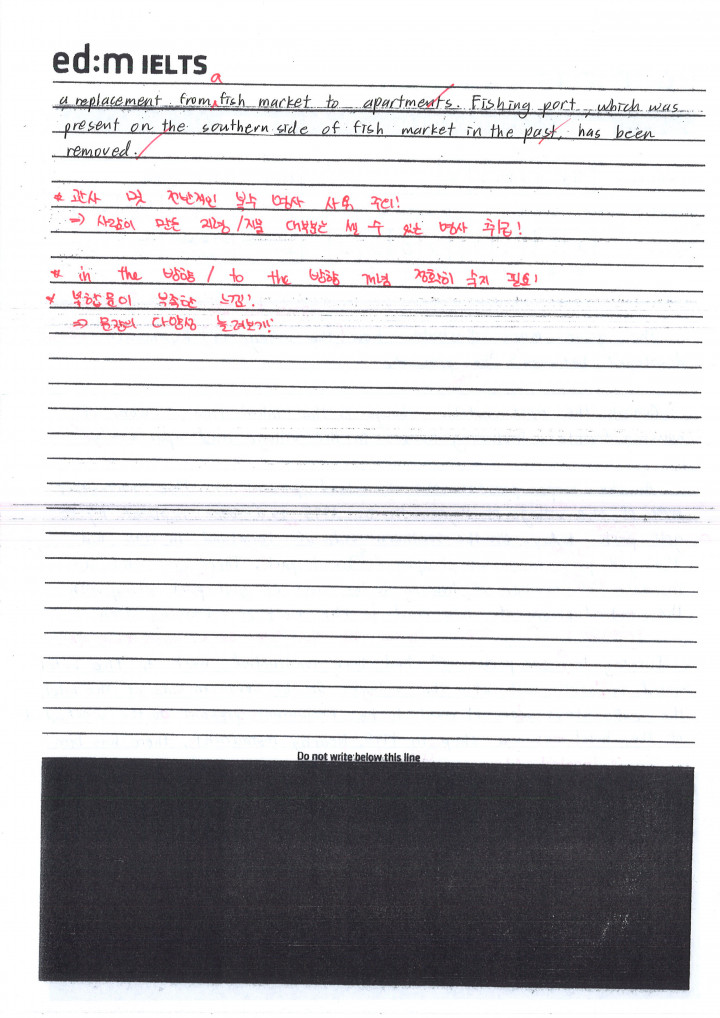 ed:m IELTS
a
a replacement from fish market to apartments. Fishing port, which was
present on the southern side of fish market in the past, has been
removed.
* 관사 및 전반적인 복수 명사 사용 주의!
⇒ 사람이 만든 지형/지물 대부분은 셀 수 있는 명사 취급!
* in the 방향 / to the 방향 개념 정확히 숙지 필요!
* 복합문이 부족한 느낌!
⇒ 문장의 다양성 늘려보기!
Do not write below this line